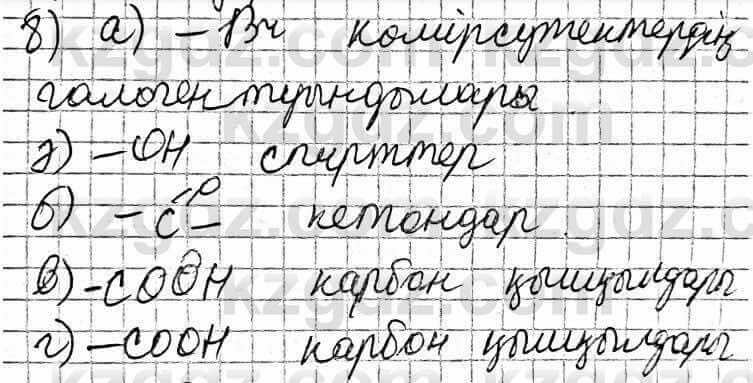 8) а) –Br көмірсутектердің
галоген туындылары
ә) –OH спирттер
б) –C=O– кетондар
в) –COOH карбон қышқылдары
г) –COOH карбон қышқылдары